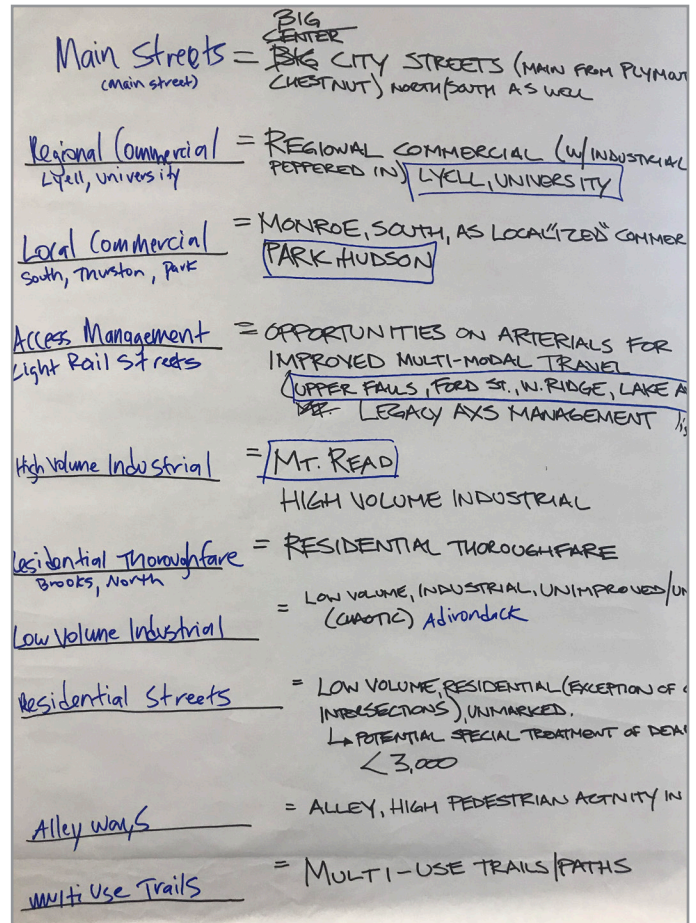 BIG
CENTER
Main Streets = BIG CITY STREETS (MAIN FROM PLYMOUT
(main street) CHESTNUT) NORTH/SOUTH AS WELL
Regional Commercial = REGIONAL COMMERCIAL (W/INDUSTRIAL
Lyell, University PEPPERED IN) LYELL, UNIVERSITY
Local Commercial = MONROE, SOUTH, AS LOCAL"IZED" COMMER
South, Thurston, Park PARK, HUDSON
Access Management = OPPORTUNITIES ON ARTERIALS FOR
Light Rail Streets IMPROVED MULTI-MODAL TRAVEL
(UPPER FALLS, FORD ST., W. RIDGE, LAKE A
LEGACY AXS MANAGEMENT
High Volume Industrial = MT. READ
HIGH VOLUME INDUSTRIAL
Residential Thoroughfare = RESIDENTIAL THOROUGHFARE
Brooks, North
Low Volume Industrial = LOW VOLUME, INDUSTRIAL, UNIMPROVED/UN
(CHAOTIC) Adirondack
Residential Streets = LOW VOLUME, RESIDENTIAL (EXCEPTION OF
INTERSECTIONS), UNMARKED.
↳ POTENTIAL SPECIAL TREATMENT OF DEA
<3,000
Alley ways = ALLEY, HIGH PEDESTRIAN ACTIVITY IN
Multi Use Trails = MULTI-USE TRAILS/PATHS